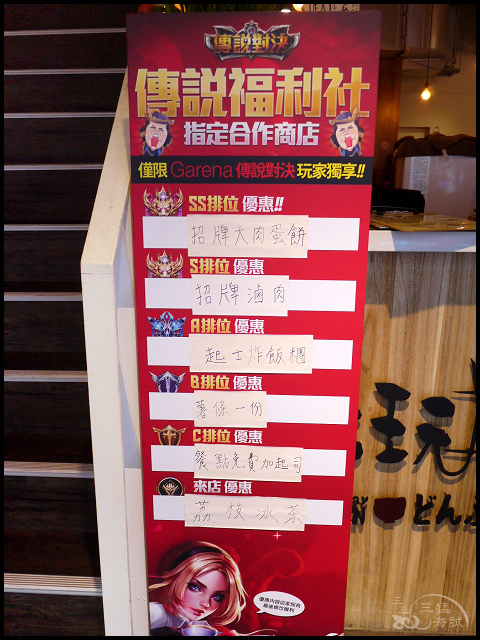 傳說對決
傳說福利社
指定合作商店
僅限 Garena 傳說對決 玩家獨享!!
SS排位 優惠!!
招牌大肉蛋餅
S排位 優惠
招牌滷肉
A排位 優惠
起士炸飯糰
B排位 優惠
薯條一份
C排位 優惠
餐點免費加起司
來店 優惠
荔枝冰茶
優惠內容店家保有
最後修改權利
狂玩
どん
三猛